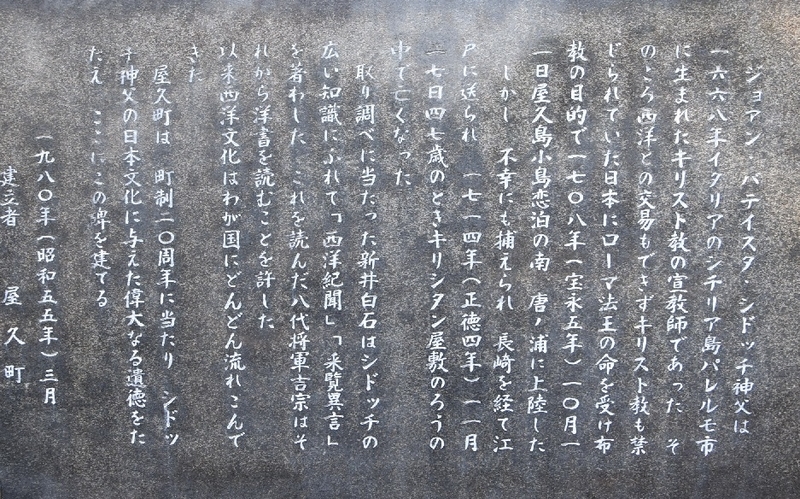 ジョアン・バテイスタ・シドッチ神父は
一六六八年イタリアのシチリア島パレルモ市
に生まれたキリスト教の宣教師であった そ
のころ西洋との交易もできずキリスト教も禁
じられていた日本にローマ法王の命を受け布
教の目的で一七〇八年(宝永五年)一〇月一
一日屋久島小島恋泊の南 唐ノ浦に上陸した
しかし 不幸にも捕えられ 長崎を経て江
戸に送られ 一七一四年(正徳四年)一一月
二七日四七歳のときキリシタン屋敷のろうの
中で亡くなった
取り調べに当たった新井白石はシドッチの
広い知識にふれて「西洋紀聞」「采覧異言」
を著わした これを読んだ八代将軍吉宗はそ
れから洋書を読むことを許した
以来西洋文化はわが国にどんどん流れこんで
きた
屋久町は 町制二〇周年に当たり シドッ
チ神父の日本文化に与えた偉大なる遺徳をた
たえ ここにこの碑を建てる
一九八〇年(昭和五五年)三月
建立者 屋久町